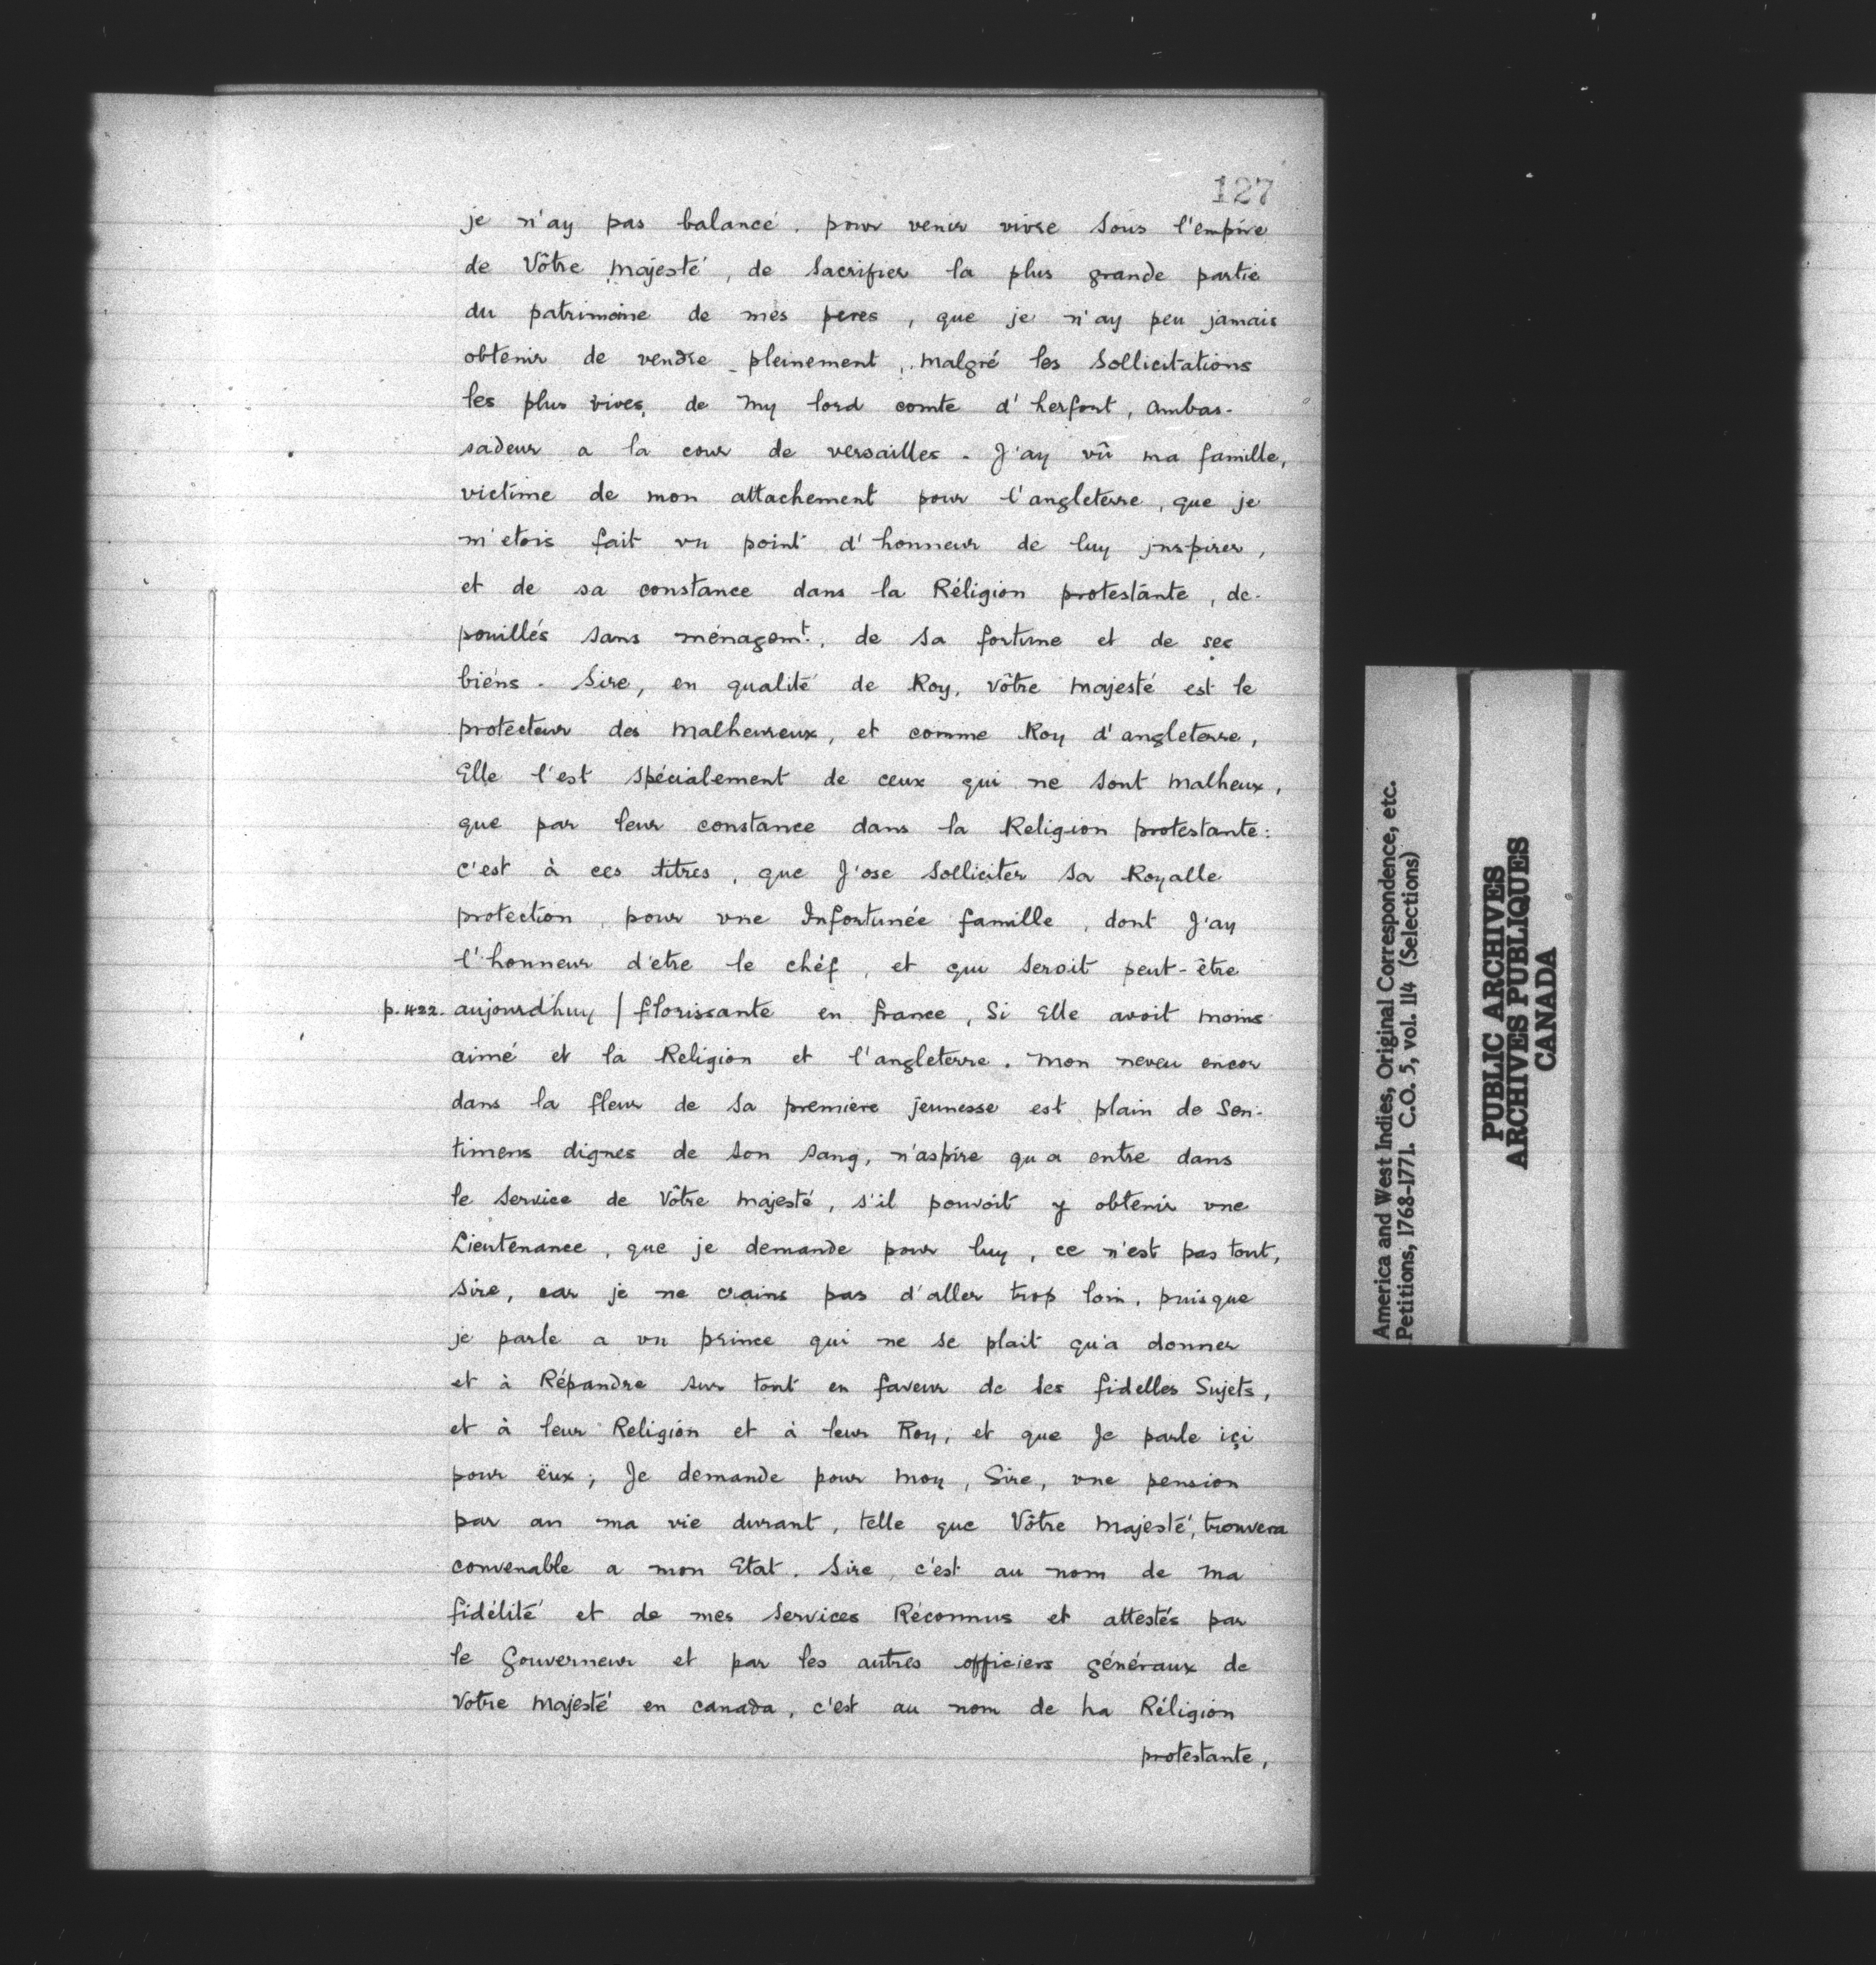 127
je n'ay pas balancé. pour venir vivre sous l'empire
de Vôtre Majesté, de sacrifier la plus grande partie
du patrimoine de mes peres, que je n'ay peu jamais
obtenir de vendre pleinement, malgré les sollicitations
les plus vives, de My lord comte d'herfort, ambas-
sadeur a la cour de versailles. J'ay vû ma famille,
victime de mon attachement pour l'angleterre, que je
m'etois fait vn point d'honneur de luy jnspirer,
et de sa constance dans la Réligion protestante, de-
pouillés sans ménagemt. de sa fortune et de ses
biéns. Sire, en qualité de Roy, vôtre majesté est le
protecteur des malheureux, et comme Roy d'angleterre,
Elle l'est spécialement de ceux qui ne sont malheux,
que par leur constance dans la Religion protestante:
c'est à ces titres, que J'ose solliciter sa Royalle
protection, pour vne Infortunée famille, dont J'ay
l'honneur d'etre le chéf, et qui seroit peut-être
p.422. aujourd'huy / florissante en france, Si Elle avoit moins
aimé et la Religion et l'angleterre. Mon neveu encor
dans la fleur de sa première jeunesse est plain de Sen-
timens dignes de son sang, n'aspire qu a entre dans
le service de Vôtre Majesté, s'il pouvoit y obtenir vne
Lieutenance, que je demande pour luy, ce n'est pas tout,
sire, car je ne crains pas d'aller trop loin, puisque
je parle a vn prince qui ne se plait qu'a donner
et à Répandre sur tout en faveur de ses fidelles Sujets,
et à leur Religion et à leur Roy, et que Je parle içi
pour ëux; Je demande pour moy, Sire, vne pension
par an ma vie durant, telle que Vôtre Majesté, trouvera
convenable a mon Etat. Sire, c'est au nom de ma
fidélité et de mes services Réconnus et attestés par
le Gouverneur et par les autres officiers généraux de
Votre Majesté en canada, c'est au nom de ha Réligion
protestante,
America and West Indies, Original Correspondence, etc.
Petitions, 1768-1771. C.O. 5, vol. 114 (Selections)
PUBLIC ARCHIVES
ARCHIVES PUBLIQUES
CANADA